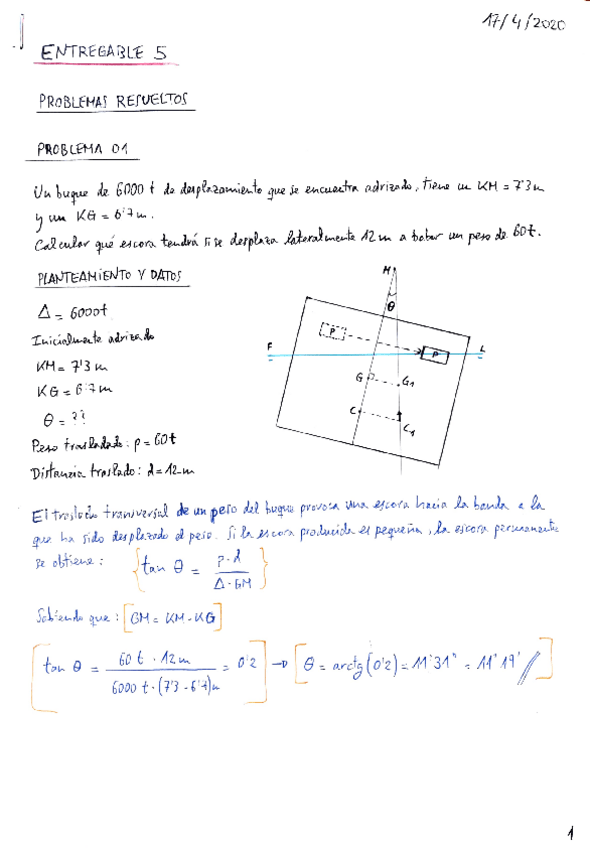 17/4/2020
ENTREGABLE 5
PROBLEMAS RESUELTOS
PROBLEMA 01
Un buque de 6000 t de desplazamiento que se encuentra adrizado, tiene un KM = 7'3 m
y un KG = 6'7 m.
Calcular qué escora tendrá si se desplaza lateralmente 12 m a babor un peso de 60 t.
PLANTEAMIENTO Y DATOS
Δ = 6000 t
Inicialmente adrizado
KM = 7'3 m
KG = 6'7 m
θ = ??
Peso trasladado: p = 60 t
Distancia traslado: d = 12 m
M
θ
P
P
F
L
G
G1
C
C1
El traslado transversal de un peso del buque provoca una escora hacia la banda a la
que ha sido desplazado el peso. Si la escora producida es pequeña, la escora permanente
se obtiene: { tan θ = p·d / Δ·GM }
Sabiendo que: [GM = KM - KG]
[ tan θ = 60 t · 12 m / 6000 t · (7'3 - 6'7) m = 0'2 ] → [ θ = arctg (0'2) = 11'31° = 11° 19' // ]
1